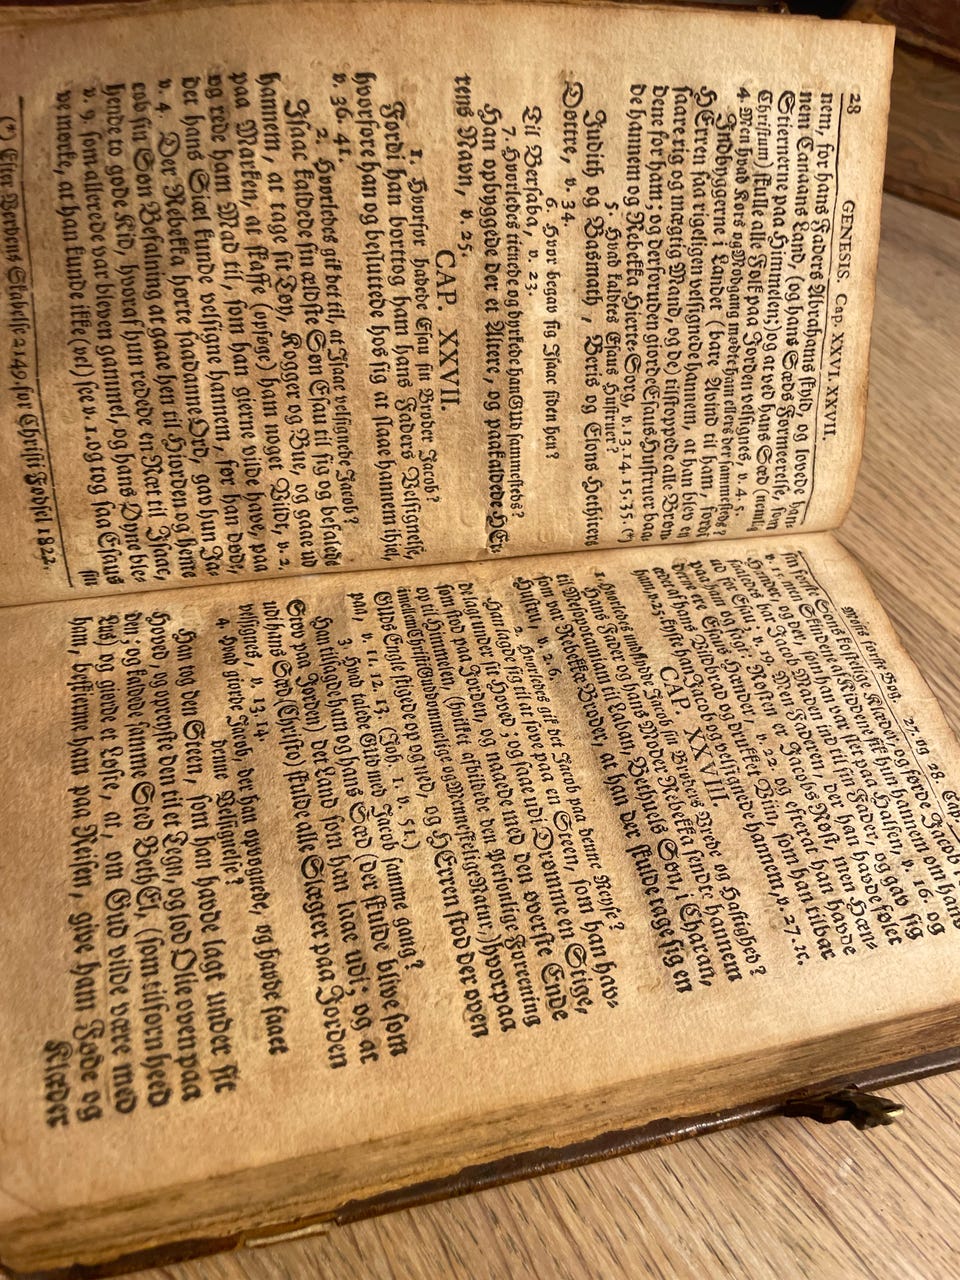 28 GENESIS. Cap. XXVI. XXVII.
nem, for hans Faders Abrahams skyld, og lovede han-
nem Canaans Land, (og hans Sæds Formeerelse, som
Stiernerne paa Himmelen;) og at ved hans Sæd (nemlig
Christum) skulle alle Folk paa Jorden velsignes, v. 4. 5.
4. Men hvad Kors og Modgang mødte ham ellers der sammesteds?
Indbyggerne i Landet (bare Avind til ham, fordi
HErren saa rigeligen velsignede hannem, at han blev en
saare rig og mægtig Mand, og de) tilstoppede alle Brøn-
dene for ham; og derforuden giorde Esaus Hustruer baa-
de hannem og Rebekka Hierte-Sorg, v. 13. 14. 15. 35. (*)
5. Hvad kaldtes Esaus Hustruer?
Judith og Basmath, Beris og Elons Hethiters
Døttre, v. 34.
6. Hvor begav sig Isaac siden hen?
Til Bersaba, v. 23.
7. Hvorledes tienede og dyrkede han GUd sammesteds?
Han opbyggede der et Altere, og paakaldede HEr-
rens Navn, v. 25.
CAP. XXVII.
1. Hvorfor hadede Esau sin Broder Jacob?
Fordi han borttog ham hans Faders Velsignelse,
hvorfore han og besluttede hos sig at slaae hannem ihiel,
v. 36. 41.
2. Hvorledes gik det til, at Isaac velsignede Jacob?
Isaac kaldede sin ældste Søn Esau til sig og befalede
hannem, at tage sit Tøy, Kogger og Bue, og gaae ud
paa Marken, at skaffe (opsøge) ham noget Vildt, v. 2.
og rede ham Mad til, som han gierne vilde have, paa
det hans Siæl kunde velsigne hannem, før han døde,
v. 4. Der Rebekka hørte saadanne Ord, gav hun Ja-
cob sin Søn Befalning at gaae hen til Hiorden og hente
hende to gode Kid, hvoraf hun redede en Ræt til Isaac,
v. 9. som allerede var bleven gammel, og hans Øyne ble-
ve mørke, at han kunde ikke (vel) see v. 1. og tog saa Esaus
sin
(*) Efter Verdens Skabelse 2149 før Christi Fødsel 1822.
Mosis første Bog. 27. og 28. Cap.
sin første Søns kostelige Klæder, og førde Jacob i
v. 15. men Skindene af Kiddene tog hun hannem om hans
Hænder, og der, som han var slet paa Halsen, v. 16. og
saaledes bar Jacob Maden ind til sin Fader, og gav sig
ud for Esau, v. 19. Men Faderen, der han havde følet
paa ham og sagt: Røsten er Jacobs Røst, men Hæn-
derne ere Esaus Hænder, v. 22. og efterat han havde
ædet af hans Vildbrad og drukket Viin, som han tilbar
ham, v. 25. kyste han Jacob og velsignede hannem, v. 27. 2c.
CAP. XXVIII.
1. Hvorledes undflyede Jacob sin Broders Vrede og Hastighed?
Hans Fader og hans Moder Rebekka sendte hannem
til Mesopotamiam til Laban, Bethuels Søn, i Charan,
som var Rebekkæ Broder, at han der skulde tage sig en
Hustru, v. 2. 6.
2. Hvorledes gik det Jacob paa denne Reyse?
Han lagde sig til at sove paa en Steen, som han hav-
de lagt under sit Hoved; og saae udi Drømme en Stige,
som stod paa Jorden, og naaede med den øverste Ende
op til Himmelen, (hvilket afbildede den Personlige Foreening
imellem Christi Guddommelige og Menneskelige Natur,) hvorpaa
GUds Engle stigede op og ned, og HErren stod der oven
paa, v. 11. 12. 13. (Joh. 1. v. 51.)
3. Hvad talede GUd med Jacob samme gang?
Han tilsagde ham og hans Sæd (der skulde blive som
Støv paa Jorden) det Land som han laae udi; og at
udi hans Sæd (Christo) skulde alle Slægter paa Jorden
velsignes, v. 13. 14.
4. Hvad giorde Jacob, der han opvognede, og havde faaet
denne Velsignelse?
Han tog den Steen, som han havde lagt under sit
Hoved, og opreyste den til et Tegn, og lod Olie oven paa
den; og kaldte samme Sted BethEl, (som tilforn heed
Lus) og giorde et Løfte, at, om Gud vilde være med
ham, beskierme ham paa Reisen, give ham Føde og
Klæder